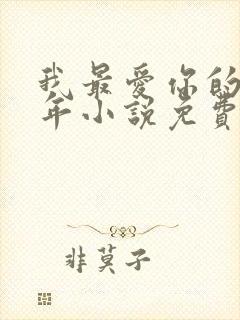 我最爱你的
年小説免費
非莫子